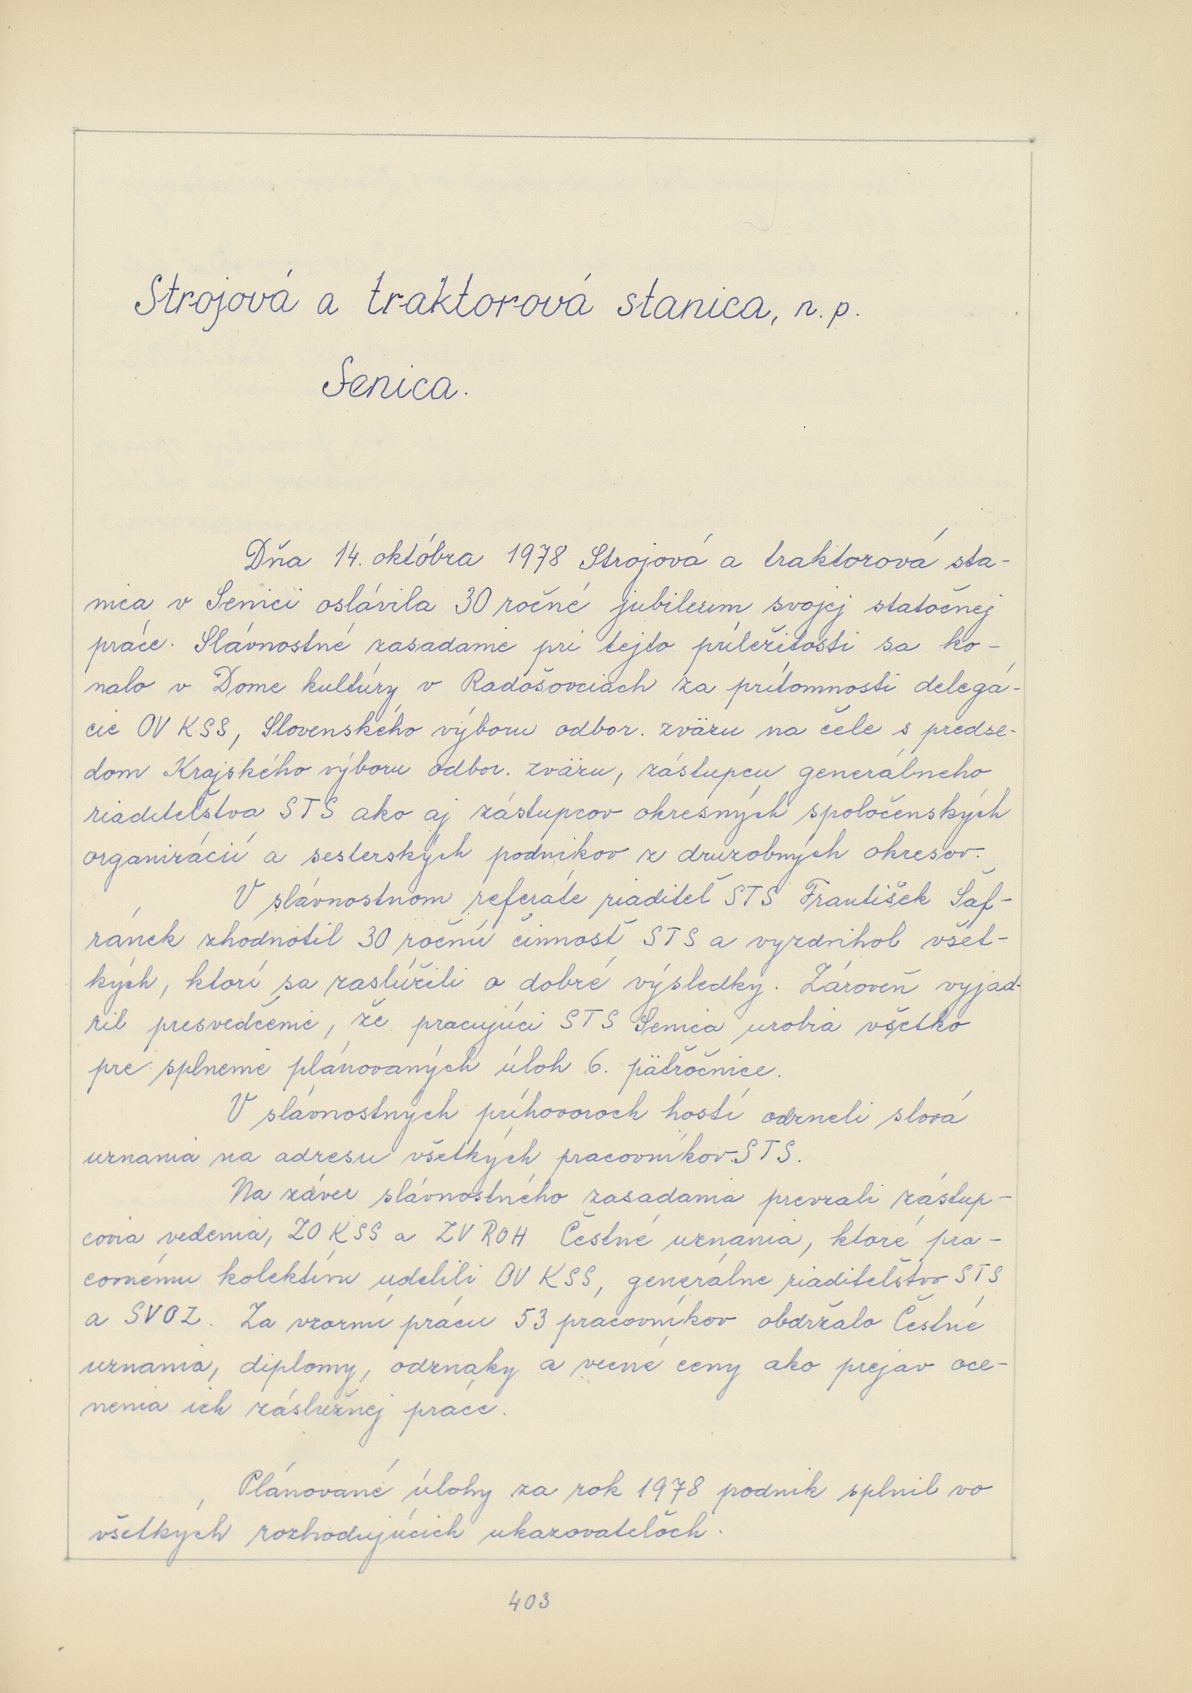 Strojová a traktorová stanica, n. p.
Senica.
Dňa 14. októbra 1978 Strojová a traktorová sta-
nica v Senici oslávila 30 ročné jubileum svojej statočnej
práce. Slávnostné zasadanie pri tejto príležitosti sa ko-
nalo v Dome kultúry v Radošovciach za prítomnosti delegá-
cie OV KSS, Slovenského výboru odbor. zväzu na čele s predse-
dom Krajského výboru odbor. zväzu, zástupcu generálneho
riaditeľstva STS ako aj zástupcov okresných spoločenských
organizácií a sesterských podnikov z družobných okresov.
V slávnostnom referáte riaditeľ STS František Šaf-
ránek zhodnotil 30 ročnú činnosť STS a vyzdvihol všet-
kých, ktorí sa zaslúžili o dobré výsledky. Zároveň vyjad-
ril presvedčenie, že pracujúci STS Senica urobia všetko
pre splnenie plánovaných úloh 6. päťročnice.
V slávnostných príhovoroch hostí odzneli slová
uznania na adresu všetkých pracovníkov STS.
Na záver slávnostného zasadania prevzali zástup-
covia vedenia, ZO KSS a ZV ROH Čestné uznania, ktoré pra-
covnému kolektívu udelili OV KSS, generálne riaditeľstvo STS
a SVOZ. Za vzornú prácu 53 pracovníkov obdržalo Čestné
uznania, diplomy, odznaky a vecné ceny ako prejav oce-
nenia ich záslužnej práce.
Plánované úlohy za rok 1978 podnik splnil vo
všetkých rozhodujúcich ukazovateľoch.
403